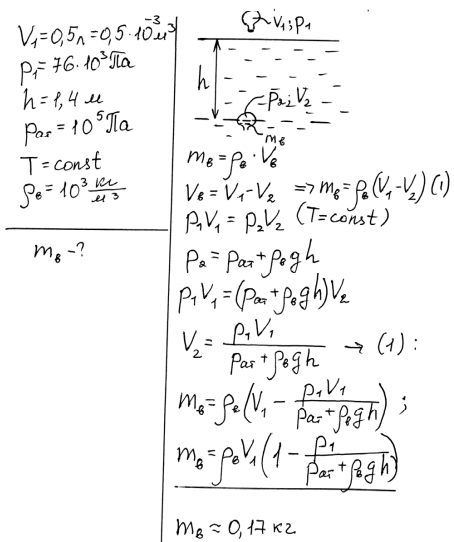 V₁=0,5л=0,5·10⁻³м³
p₁=76·10³Па
h=1,4 м
pат=10⁵Па
T=const
ρв=10³ кг/м³
mв-?
V₁; p₁
h
p₂; V₂
mв
mв=ρв·Vв
Vв=V₁-V₂ ⇒mв=ρв(V₁-V₂) (1)
p₁V₁=p₂V₂ (T=const)
p₂=pат+ρвgh
p₁V₁=(pат+ρвgh)V₂
V₂=p₁V₁/(pат+ρвgh) → (1):
mв=ρв(V₁-p₁V₁/(pат+ρвgh));
mв=ρвV₁(1-p₁/(pат+ρвgh))
mв≈0,17 кг